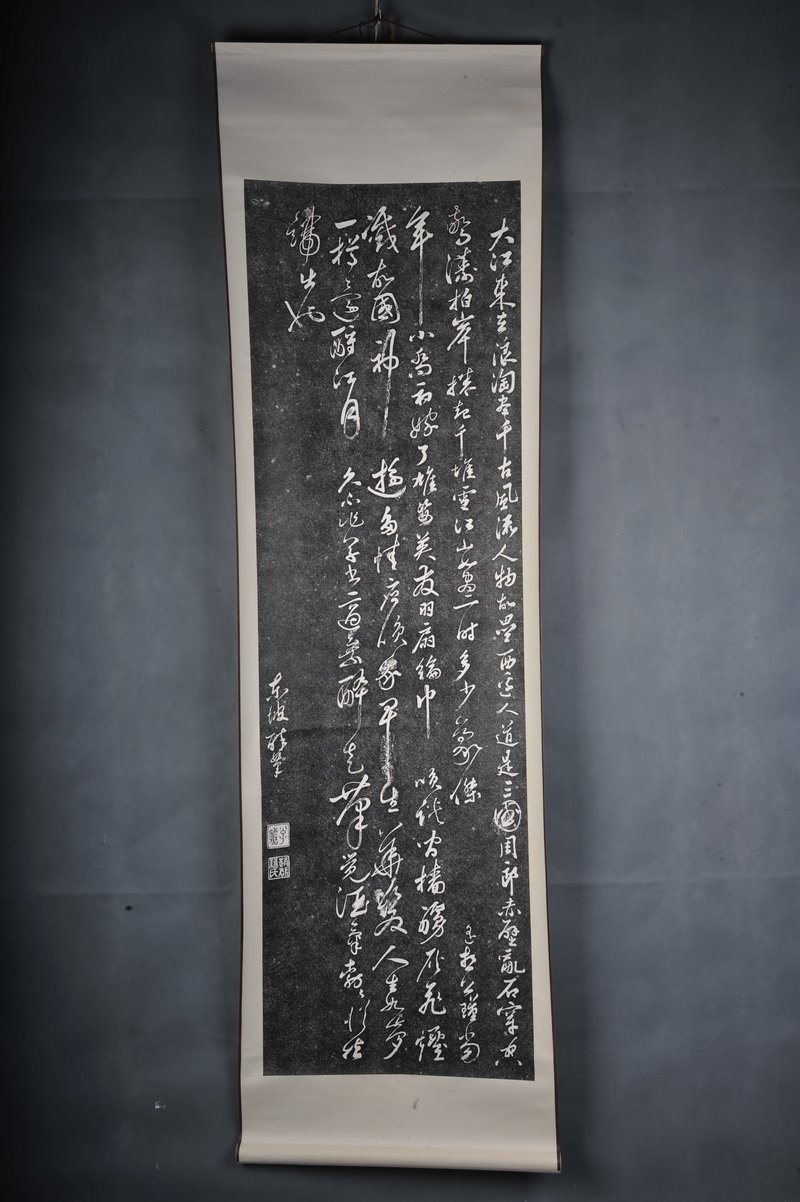 大江東去浪淘盡千古風流人物故壘西邊人道是三國周郎赤壁亂石穿空
驚濤拍岸捲起千堆雪江山如畫一時多少豪傑遙想公瑾當
年小喬初嫁了雄姿英發羽扇綸巾笑談間檣艣灰飛煙
滅故國神遊多情應笑我早生華髮人生如夢
一樽還酹江月久不作草書適乘醉走筆覺酒氣勃勃從指
端出也
東坡醉筆
子瞻